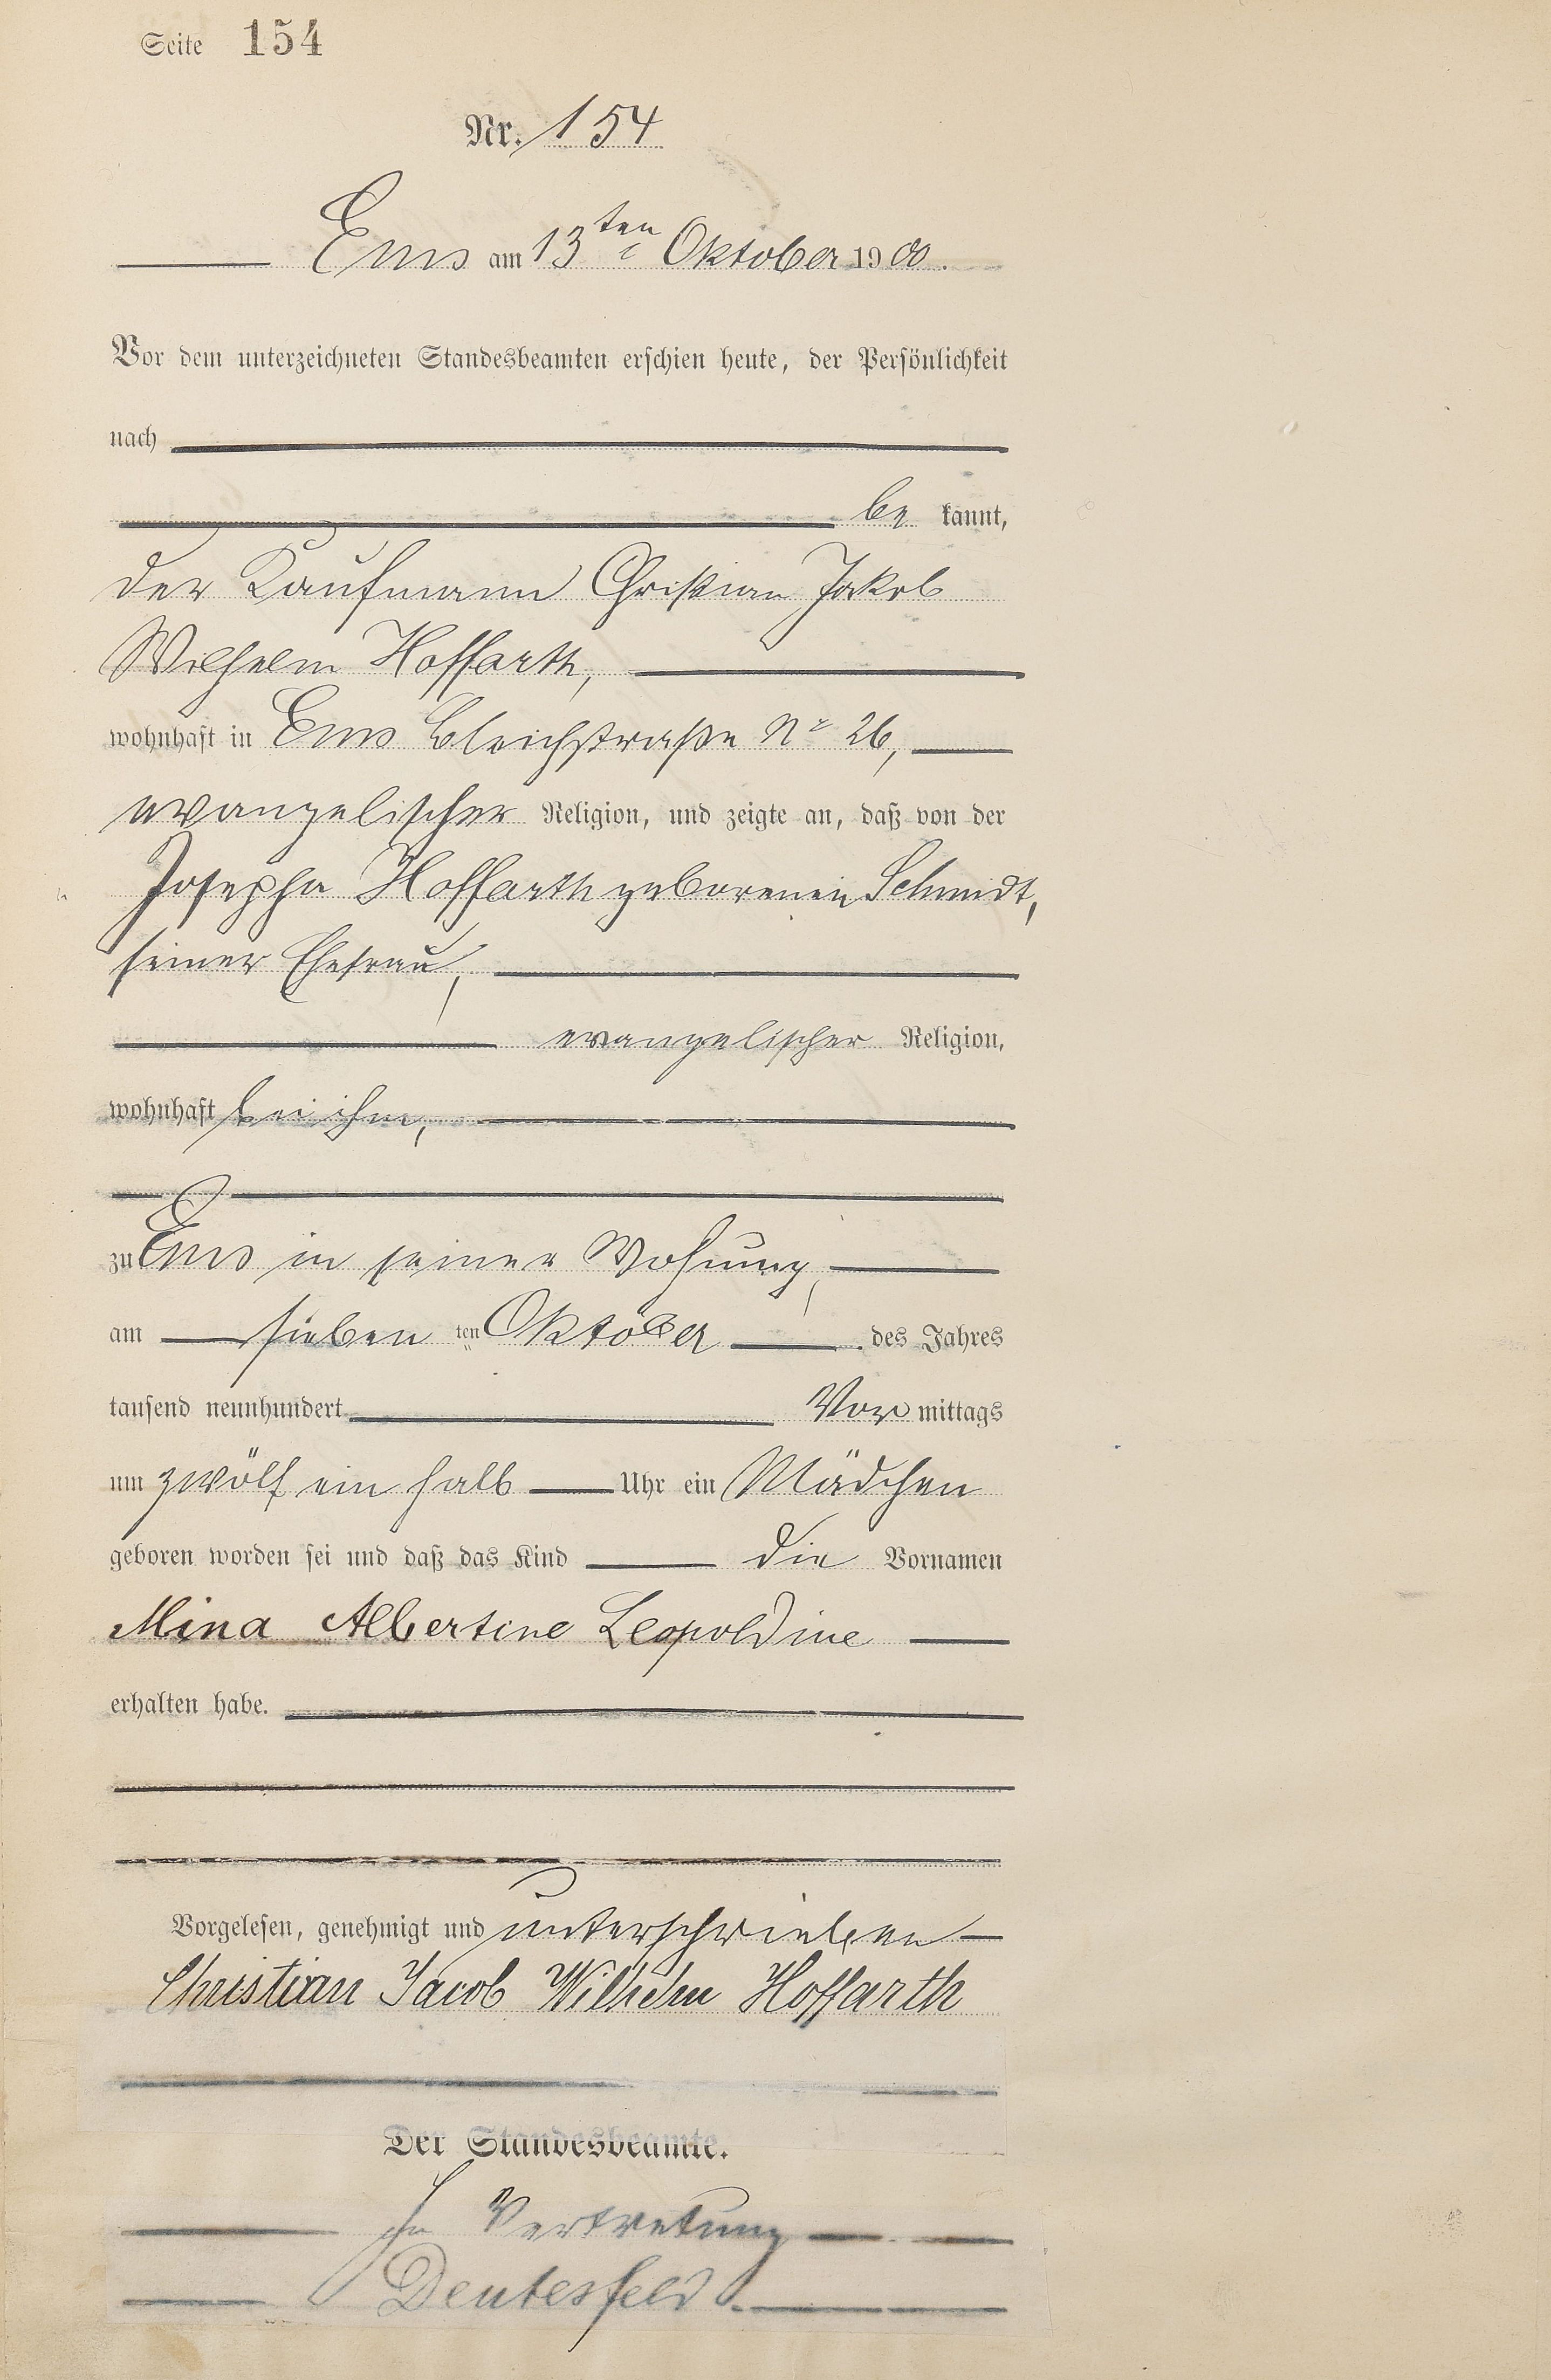 Seite 154
Nr. 154
Ems am 13ten Oktober 1900.
Vor dem unterzeichneten Standesbeamten erschien heute, der Persönlichkeit
nach
be kannt,
der Kaufmann Christian Jakob
Wilhelm Hoffarth,
wohnhaft in Ems Bleichstraße Nr 26,
evangelischer Religion, und zeigte an, daß von der
Josepha Hoffarth geborenen Schmidt,
seiner Ehefrau,
evangelischer Religion,
wohnhaft bei ihm,
zu Ems in seiner Wohnung,
am sieben ten Oktober des Jahres
tausend neunhundert Vor mittags
um zwölf ein halb Uhr ein Mädchen
geboren worden sei und daß das Kind die Vornamen
Mina Albertine Leopoldine
erhalten habe.
Vorgelesen, genehmigt und unterschrieben
Christian Jacob Wilhelm Hoffarth
Der Standesbeamte.
In Vertretung
Deutesfeld.